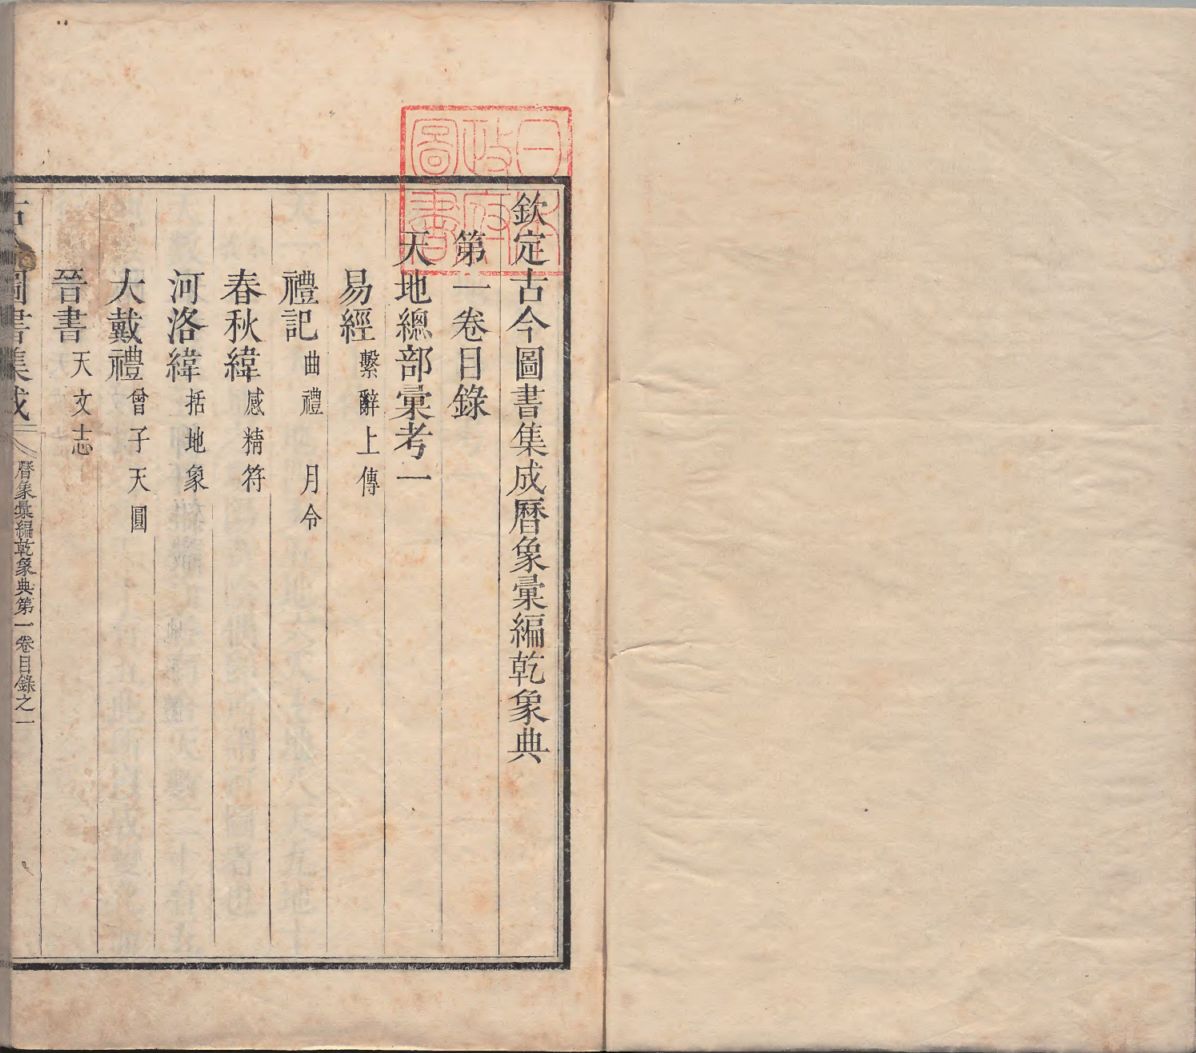 欽定古今圖書集成曆象彙編乾象典
第一卷目錄
天地總部彙考一
易經 繫辭上傳
禮記 曲禮 月令
春秋緯 感精符
河洛緯 括地象
大戴禮 曾子天圓
晉書 天文志
古今圖書集成 曆象彙編乾象典第一卷目錄之一
日本政府圖書